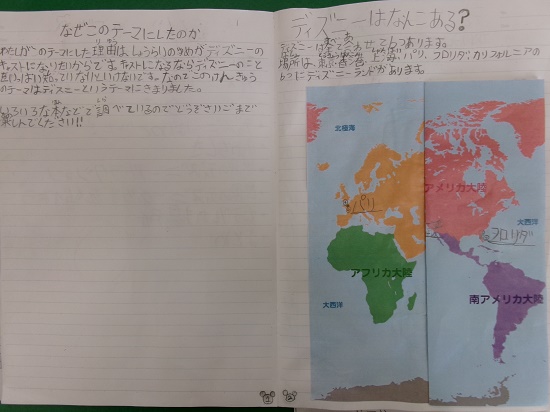 なぜこのテーマにしたのか
わたしがこのテーマにした理由は、しょうらいのゆめがディズニーの
キャストになりたいからです。キャストになるならディズニーのこと
をいっぱい知っていなりといけないです。なのでこのけんきゅう
のテーマはディズニーというテーマにきまりました。
いろいろな本などで調べているのでどうぞさいごまで
楽しんでください!!
ディズニーはなんこある?
ディズニーは全てあわせて6つあります。
場所は、東京、香港、上海、パリ、フロリダ、カリフォルニアの
6つにディズニーランドがあります。
北極海
パリ
アフリカ大陸
大西洋
アメリカ大陸
大西洋
フロリダ
南アメリカ大陸